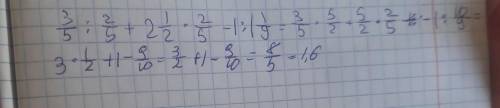 3/5 : 2/5 + 2 1/2 · 2/5 - 1 : 1 1/9 = 3/5 · 5/2 + 5/2 · 2/5 - 1 : 10/9 =
3 · 1/2 + 1 - 9/10 = 3/2 + 1 - 9/10 = 8/5 = 1,6